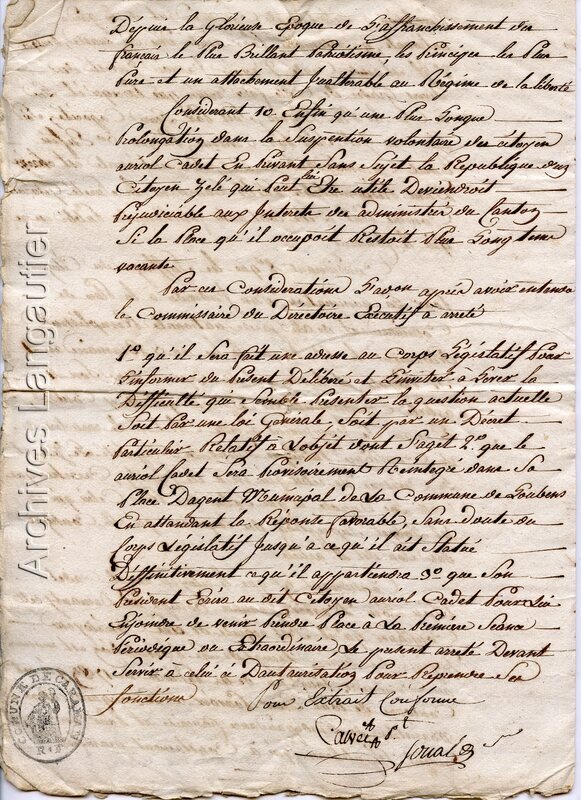 Depuis la Glorieuse Epoque de L'affranchissement des
français le Plus Brillant Patriotisme, les Principes les Plus
Purs et un attachement Inalterable au Régime de la liberté
Considerant 10 Enfin qu'une Plus Longue
Prolongation dans la Suspention volontaire des citoyen
auriol Cadet En Privant Sans Sujet la République d'un
Citoyen Zelé qui Peut lui Etre utile Deviendroit
Préjudiciable aux Interets des administrés du Canton
Si la Place qu'il occupoit Restoit Plus Long tems
vacante
Par ces Considerations après avoir entendu
le Commissaire du Directoire Exécutif a arreté
1º qu'il Sera fait une adresse au Corps Législatif Pour
L'informer du Présent Déliberé et L'inviter à Lever la
Difficulté que Semble Présenter la question actuelle
Soit Par une loi Générale, Soit par un Décret
Particulier Relatif à L'objet dont S'agit 2º que le
auriol Cadet Sera Provisoirement Réintegré dans Sa
Place D'agent Municipal de La Commune de Loubens
En attendant la Réponse favorable, Sans doute du
Corps Législatif Jusqu'a ce qu'il ait Statué
Diffinitivement ce qu'il appartiendra 3º que Son
Président Ecrira au dit Citoyen auriol Cadet Pour Lui
Enjondre de venir Prendre Place a La Premiere Seance
Périodique ou Extraordinaire Le present arreté Devant
Servir à celui ci D'autorisation Pour Reprendre Ses
fonctions
Pour Extrait Conforme
Calvet Pt
Archives Langautier
COMMUNE DE CARAMAN
R.F